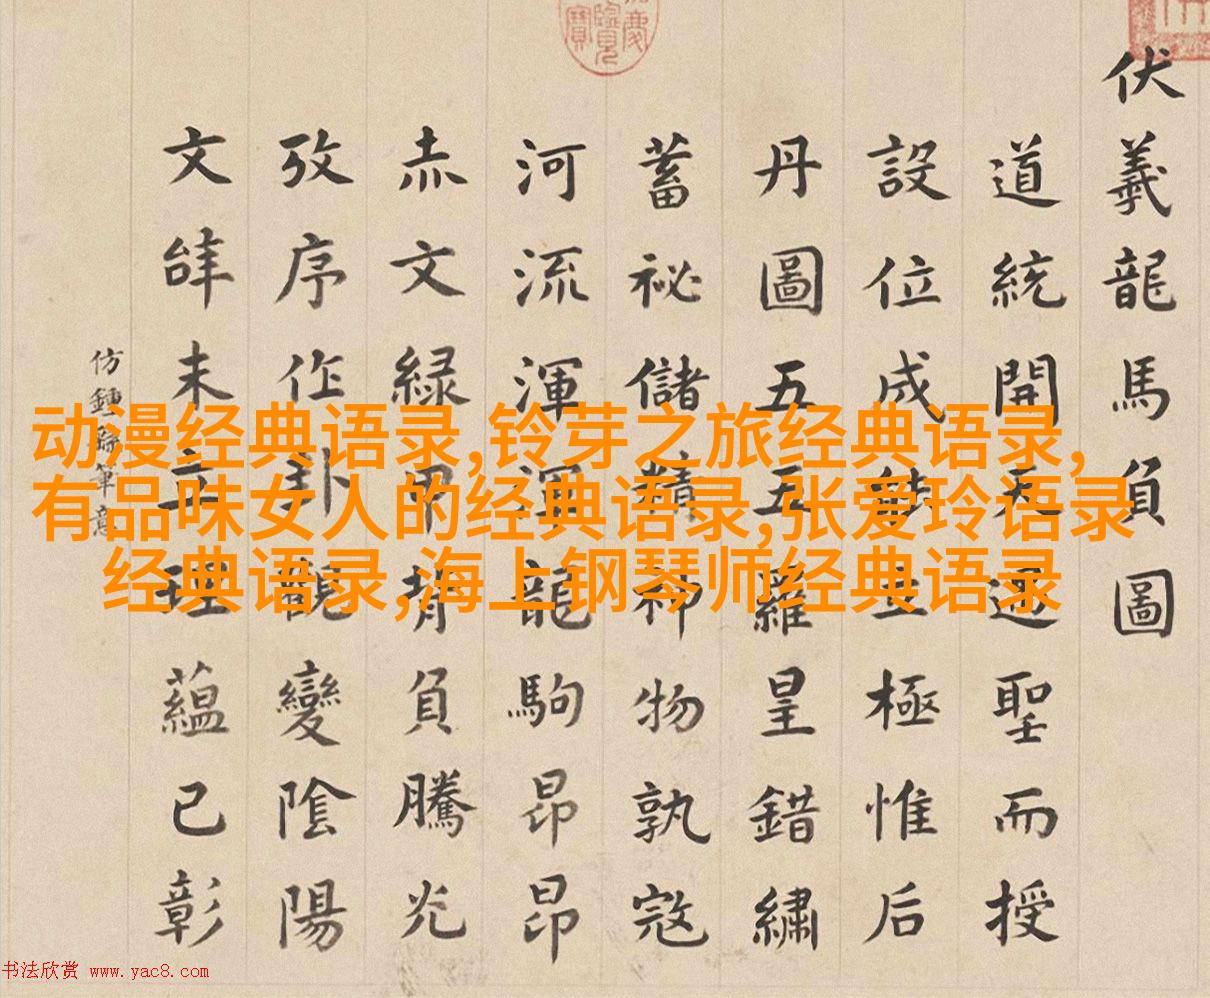 伏羲龍馬負圖
道統開天聖而授
設位成能立極惟后
丹圖五五羅皇錯繡
蓄祕儲精神物孰寇
河流渾渾龍駒昂昂
赤文緑甲背負騰光
攷序作卦觀變陰陽
文未立理蘊已彰
仿鍾繇筆意
动漫经典语录,铃芽之旅经典语录,
有品味女人的经典语录,张爱玲语录
经典语录,海上钢琴师经典语录
书法欣赏 www.yac8.com